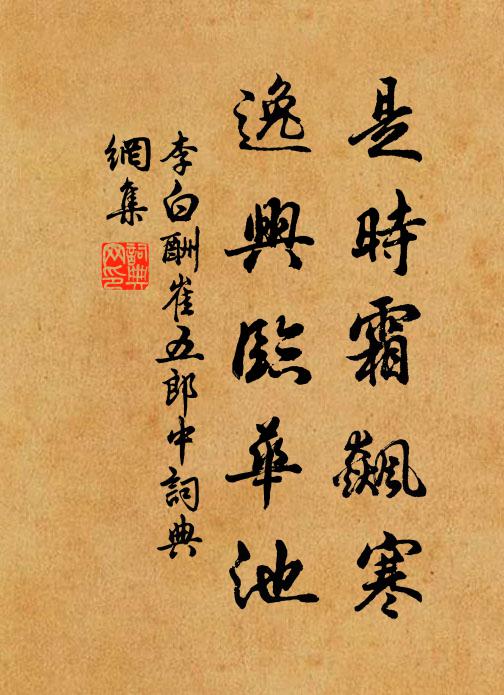 是時霜飆寒
逸興臨華池
李白酬崔五郎中詞典
網集
詞典
网印